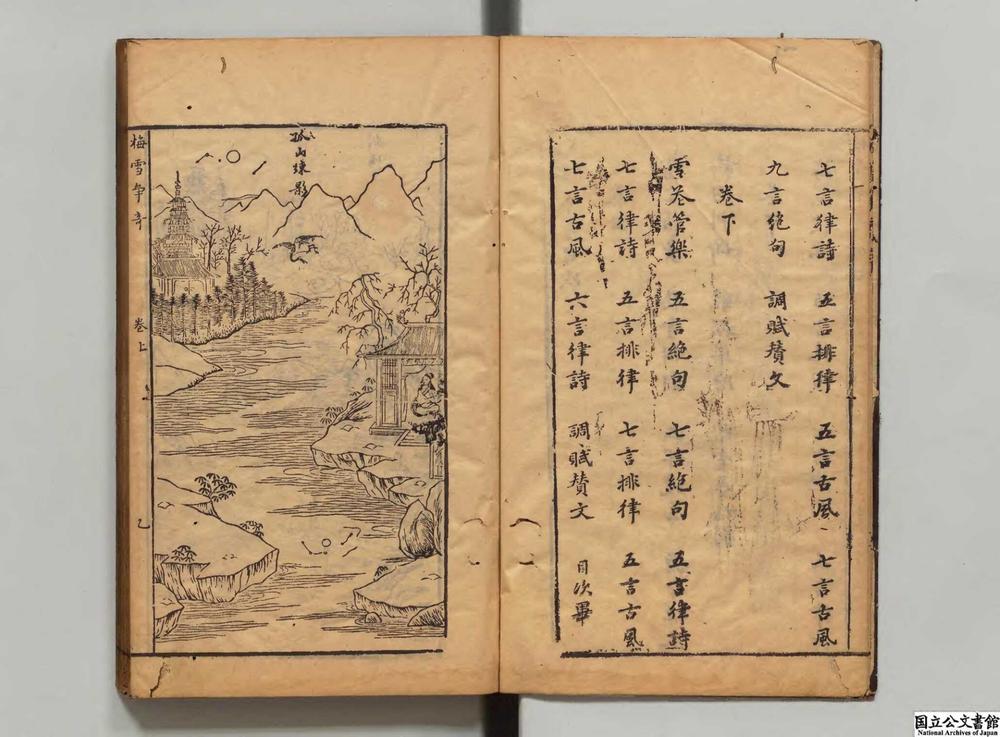 七言律詩 五言排律 五言古風 七言古風
九言絶句 調賦賛文
卷下
雪卷管樂 五言絶句 七言絶句 五言律詩
七言律詩 五言排律 七言排律 五言古風
七言古風 六言律詩 調賦賛文 目次畢
孤山
踈影
梅雪争奇 卷上 乙
国立公文書館
National Archives of Japan